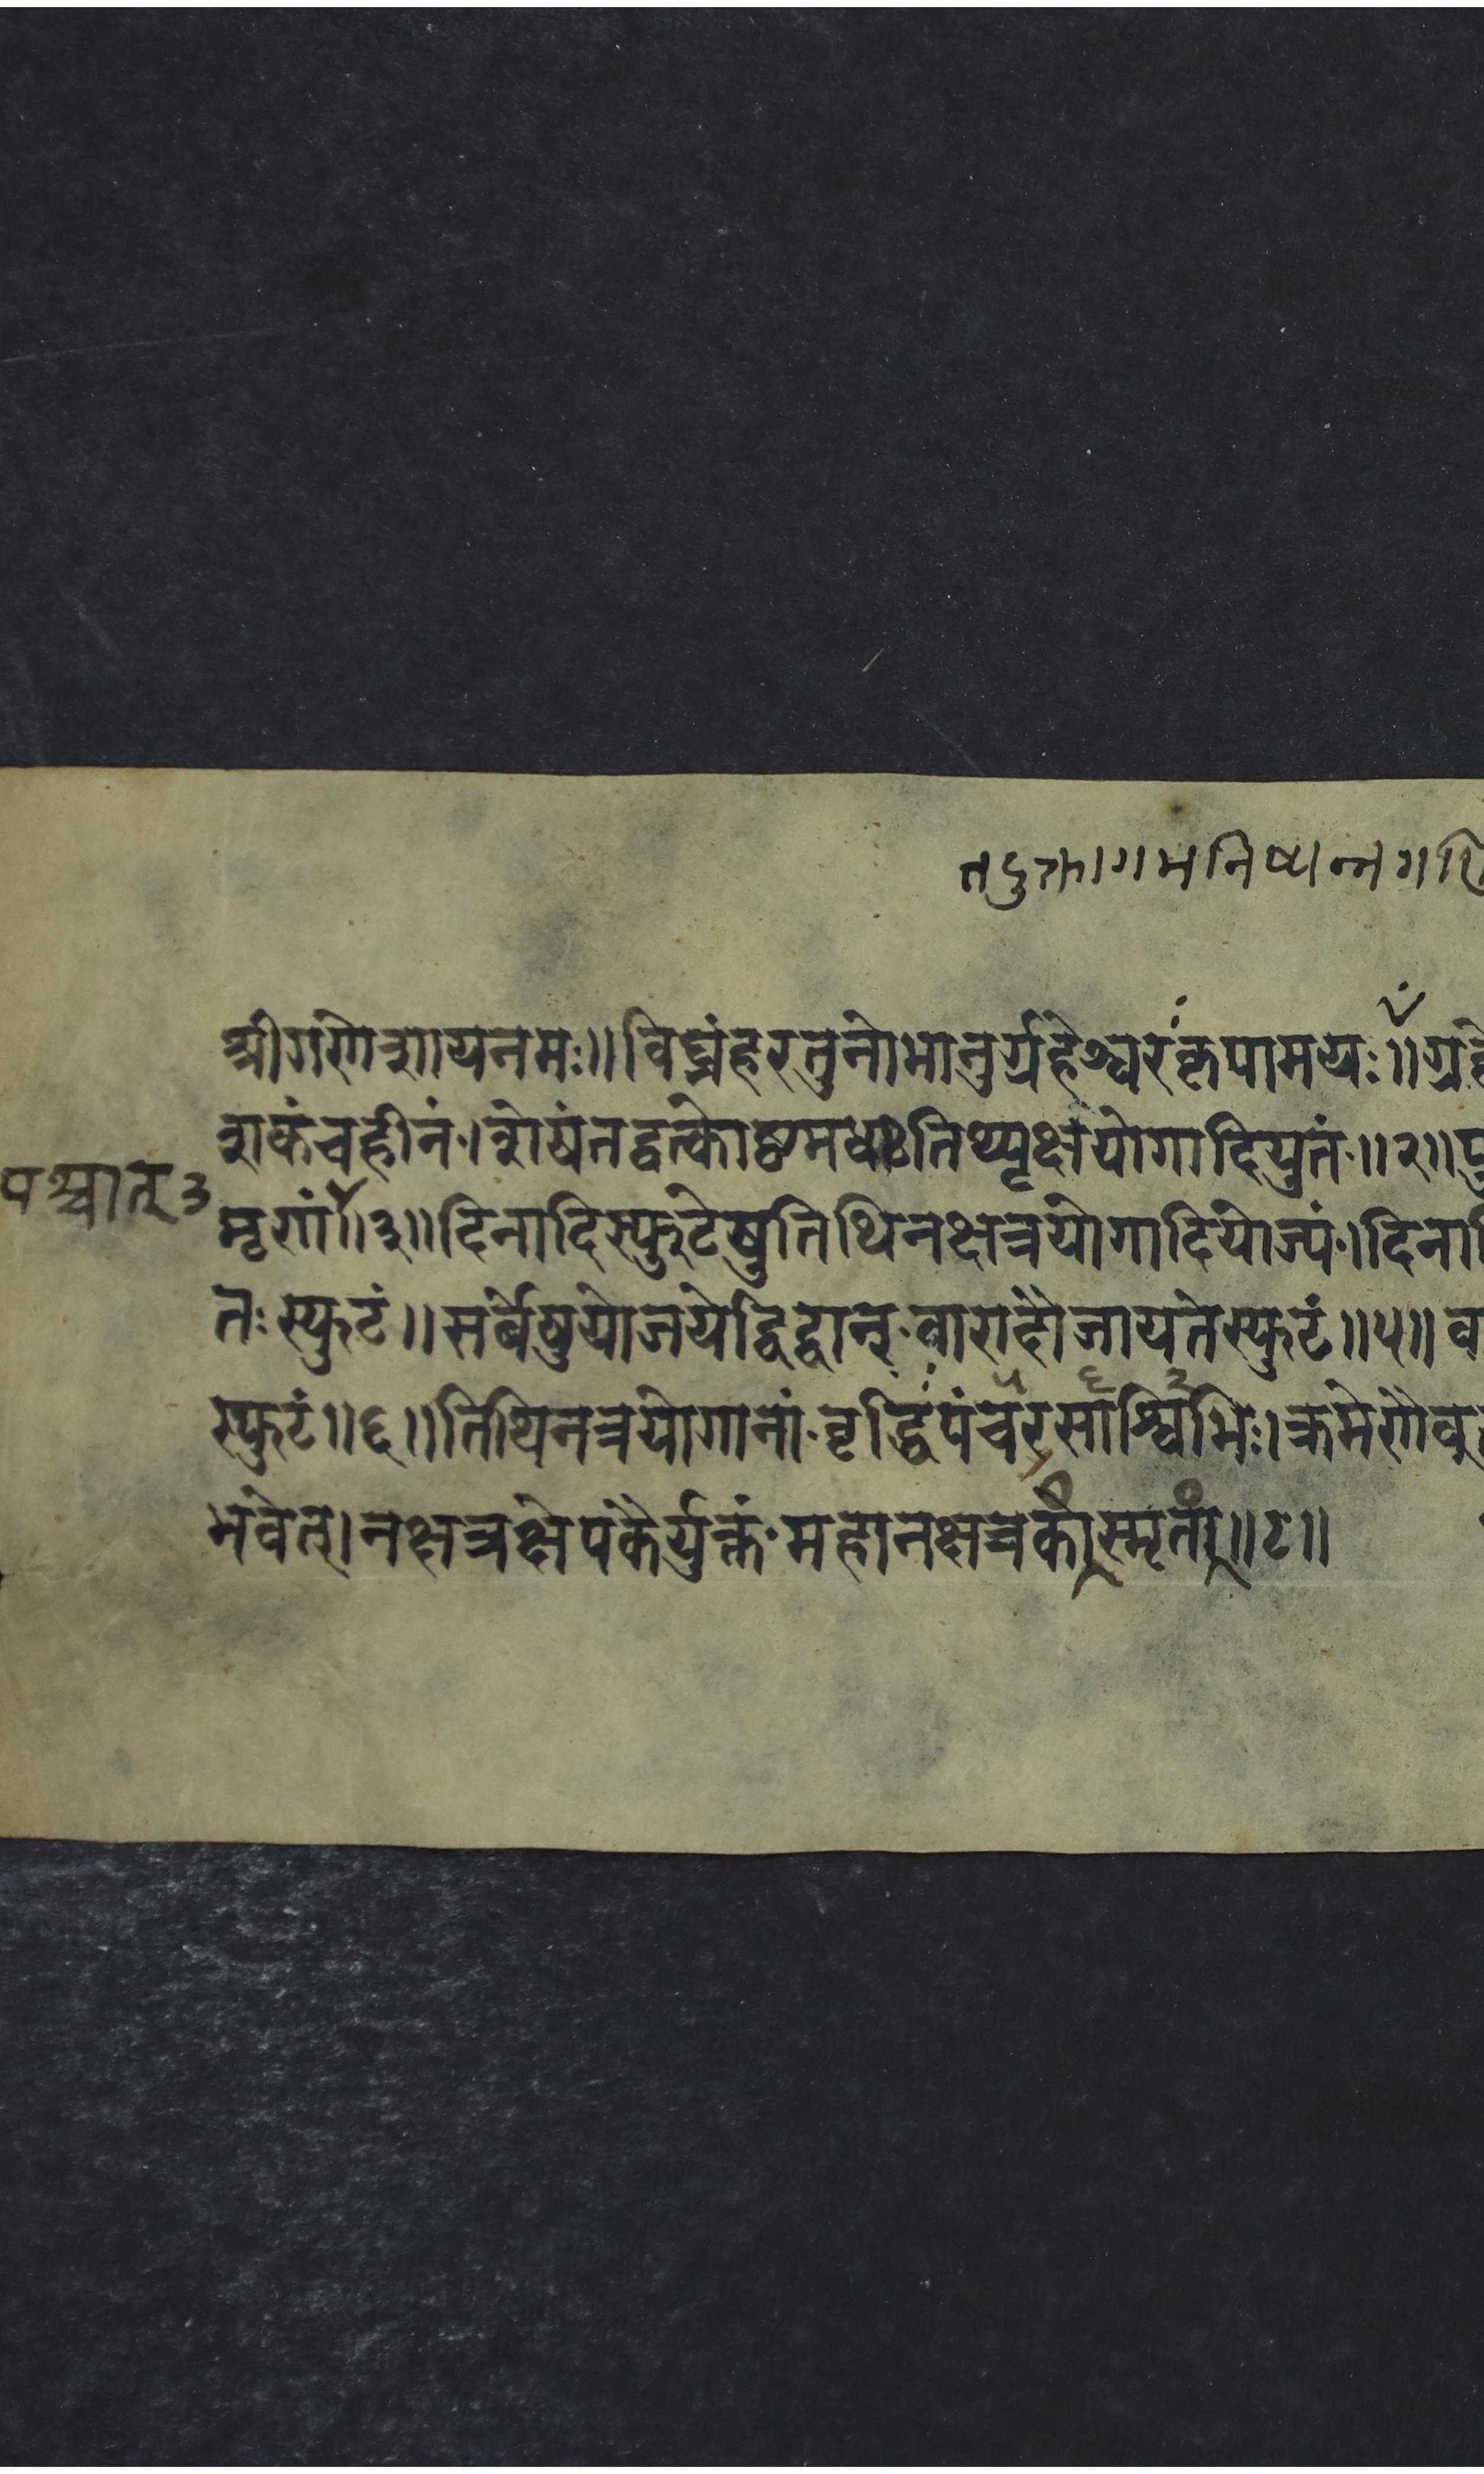 तदुक्तागमनिष्पन्नग
श्रीगणेशायनमः॥विघ्नंहरतुनोभानुर्ग्रहेश्वरकृपामयः॥ग्रहे
शकंचहीनं।शेषंतद्वत्कोष्ठमधःतिथ्यृक्षयोगादियुतं॥२॥पु
पश्चात् ३
मृगां॥३॥दिनादिस्फुटेषुतिथिनक्षत्रयोगादियोज्यं।दिनादि
तःस्फुटं॥सर्बेषुयोजयेद्विद्वान्बारादौजायतेस्फुटं॥५॥व
५ ६ २
स्फुटं॥६॥तिथिनत्रयोगानांवृद्धिपंचरसाश्विभिः।क्रमेणैव
भवेत्।नक्षत्रक्षेपकैर्युक्तंमहानक्षत्रकास्मृता॥८॥